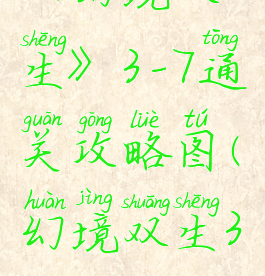 shēng tōng
生》3-7通
guān gōng lüè tú
关攻略图(
huàn jìng shuāng shēng
幻境双生3